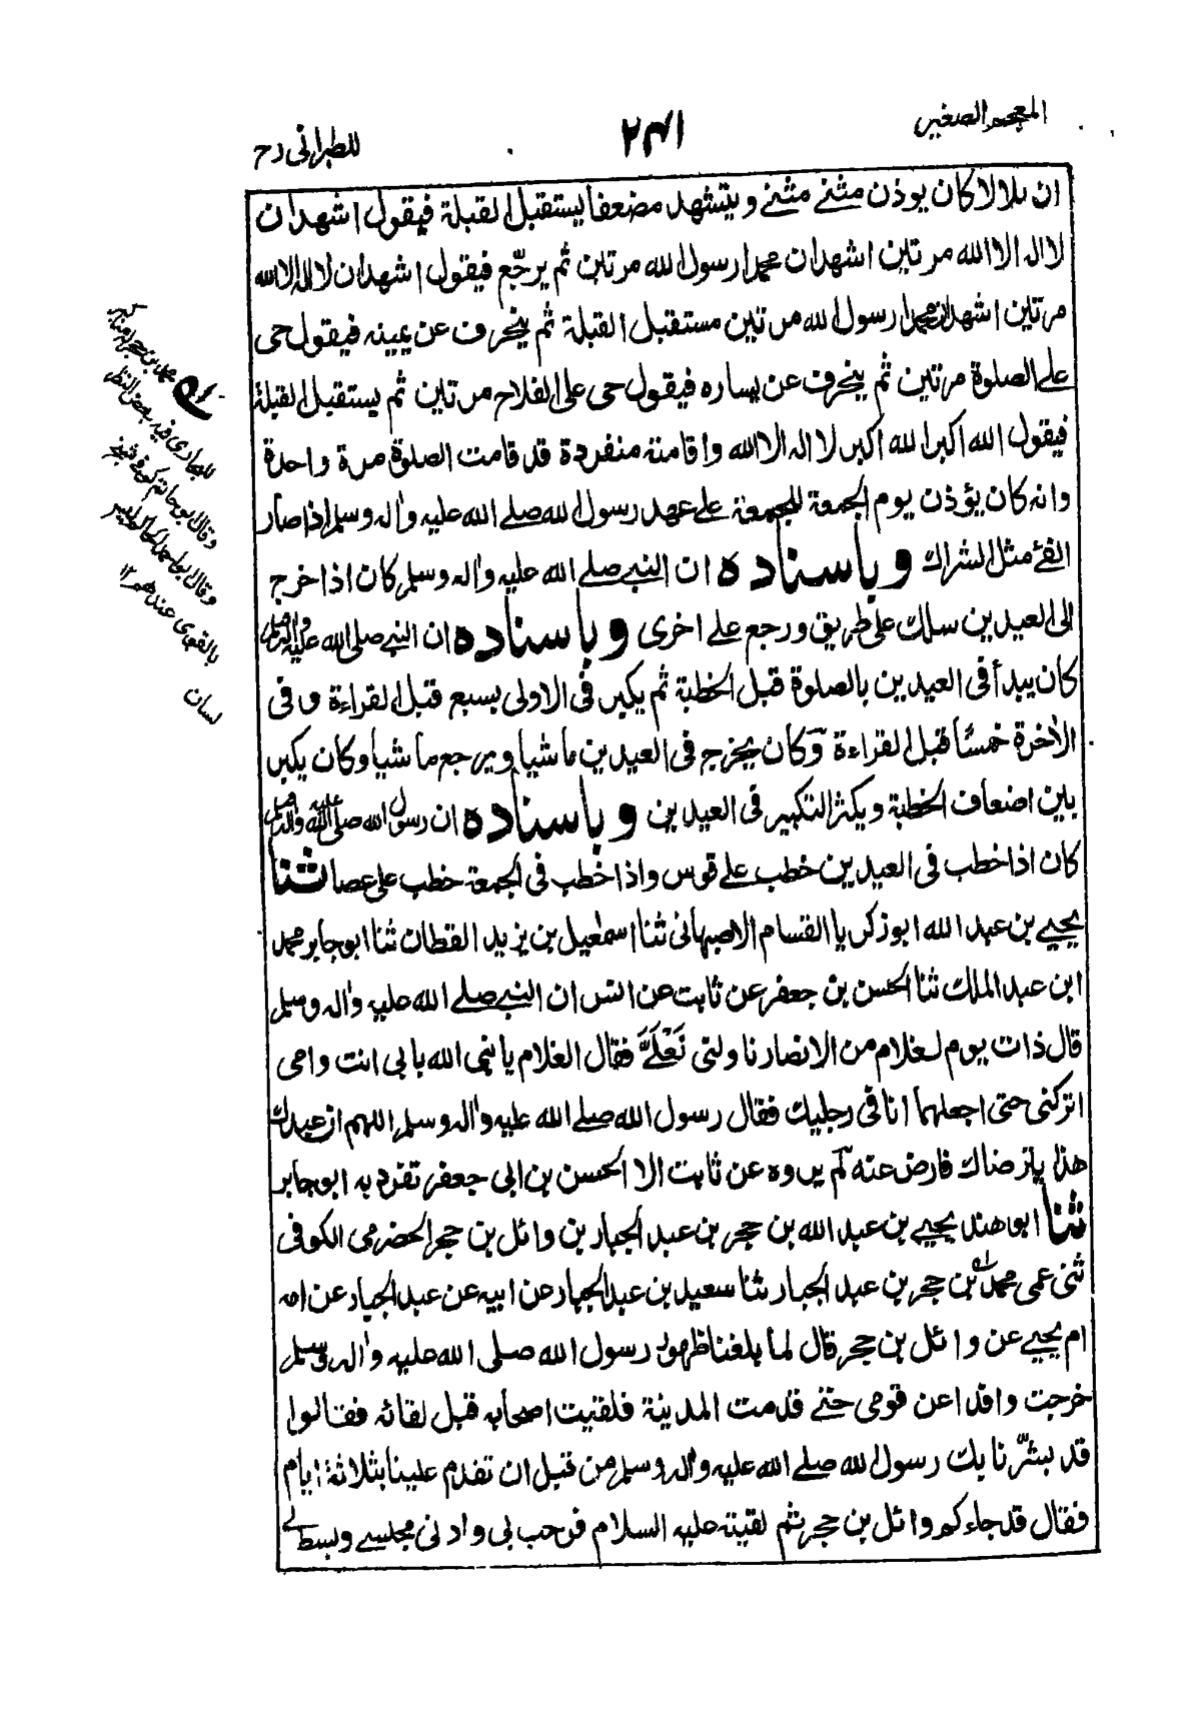 المعجم الصغير
٢٤١
للطبرانی رح
ان بلالا كان يوذن مثنے مثنے ويتشهد مضعفا يستقبل القبلة فيقول اشهد ان
لا اله الا الله مرتين اشهد ان محمدا رسول الله مرتين ثم يرجّع فيقول اشهد ان لا اله الا الله
مرتين اشهد ان محمدا رسول الله مرتين مستقبل القبلة ثم ينحرف عن يمينه فيقول حی
علے الصلوة مرتين ثم ينحرف عن يساره فيقول حی علی الفلاح مرتين ثم يستقبل القبلة
فيقول الله اكبر الله اكبر لا اله الا الله واقامته منفردة قد قامت الصلوة مرة واحدة
وانه كان يؤذن يوم الجمعة للجمعة علے عهد رسول الله صلے الله عليه واٰله وسلم اذا صار
الفئ مثل الشراك وباسناده ان النبے صلے الله عليه واٰله وسلم كان اذا خرج
الی العيدين سلك علی طريق ورجع علے اخری وباسناده ان النبے صلی الله عليه واٰله وسلم
كان يبدأ فی العيدين بالصلوة قبل الخطبة ثم يكبر فی الاولی بسبع قبل القراءة وفی
الاٰخرة خمسًا قبل القراءة وكان يخرج فی العيدين ماشيا ويرجع ماشيا وكان يكبر
بين اضعاف الخطبة ويكثر التكبير فی العيدين وباسناده ان رسول الله صلی الله عليه واٰله وسلم
كان اذا خطب فی العيدين خطب علے قوس واذا خطب فی الجمعة خطب علی عصا ثنا
يحيے بن عبد الله ابو زكريا القسام الاصبهانی ثنا اسمٰعيل بن يزيد القطان ثنا ابو جابر محمد
ابن عبد الملك ثنا الحسن بن جعفر عن ثابت عن انس ان النبے صلے الله عليه واٰله وسلم
قال ذات يوم لغلام من الانصار ناولنی نَعْلَیَّ فقال الغلام يا نبی الله بابی انت وامی
اتركنی حتی اجعلهما انا فی رجليك فقال رسول الله صلے الله عليه واٰله وسلم اللهم ان عبدك
هذا يترضاك فارض عنه لم يروه عن ثابت الا الحسن بن ابی جعفر تفرد به ابو جابر
ثنا ابو هند يحيے بن عبد الله بن حجر بن عبد الجبار بن وائل بن حجر الحضرمی الكوفی
ثنی عمی محمد بن حجر بن عبد الجبار ثنا سعيد بن عبد الجبار عن ابيه عن عبد الجبار عن امه
ام يحيے عن وائل بن حجر قال لما بلغنا ظهور رسول الله صلی الله عليه واٰله وسلم
خرجت وافدا عن قومی حتے قدمت المدينة فلقيت اصحابه قبل لقائه فقالوا
قد بشّرنا بك رسول الله صلے الله عليه واٰله وسلم من قبل ان تقدم علينا بثلاثة ايام
فقال قد جاءكم وائل بن حجر ثم لقيته عليه السلام فرحب بی وادنی مجلسے وبسط لے
محمد بن حجر
للبخاری فيه بعض النظر
وقال ابو حاتم كوفی شيخ
وقال ابو احمد الحاكم ليس
بالقوی عندهم ١٢
لسان